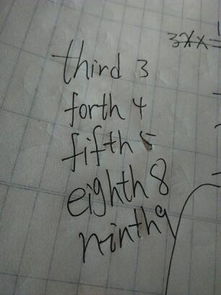 third 3
forth 4
fifth 5
eighth 8
ninth 9
3xx=